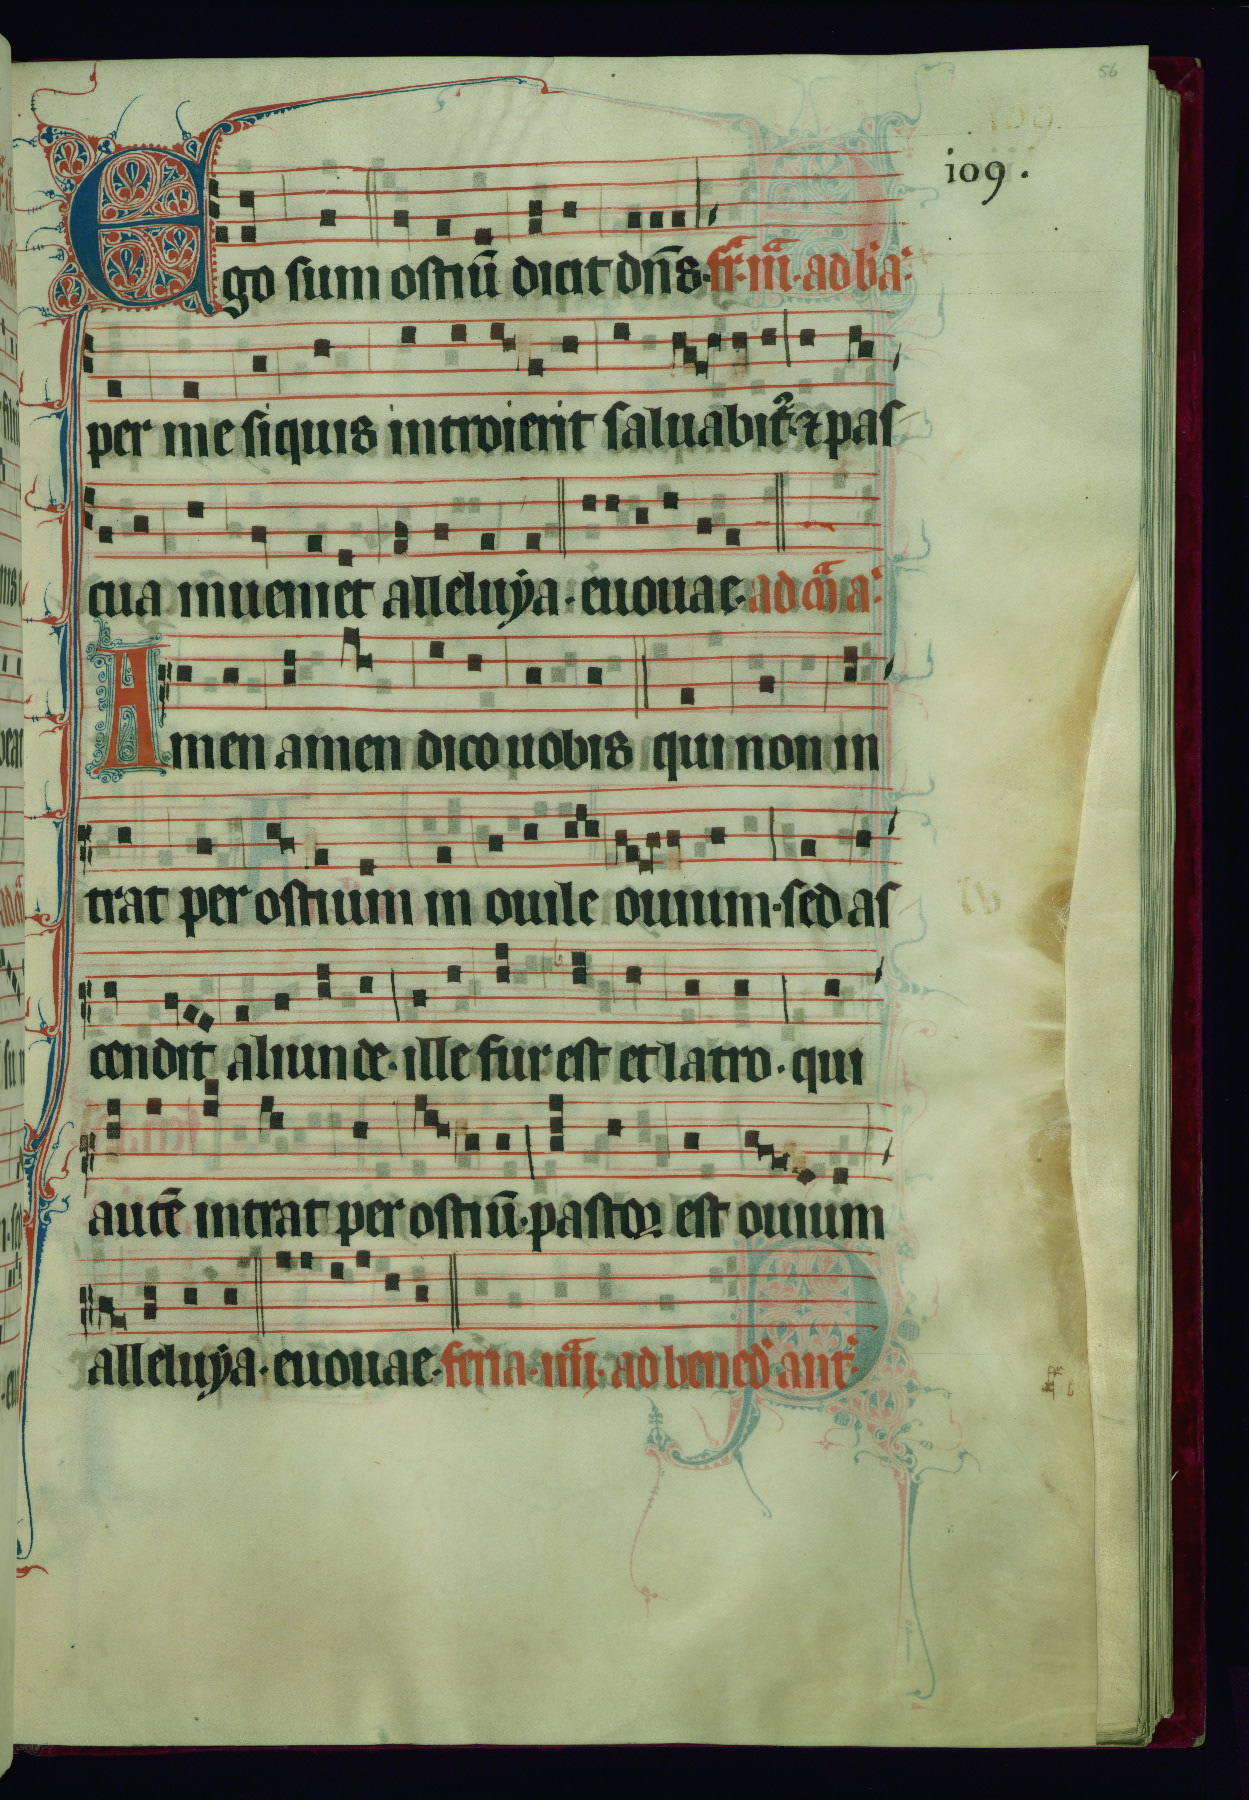 56
109.
Ego sum ostiū dicit dn̄s. fr̄. iii. ad b̄a.
per me siquis introierit saluabit᷑. ⁊ pas
cua inueniet alleluya. euouae. ad m̄ a.
Amen amen dico uobis qui non in
trat per ostium in ouile ouium. sed as
cendit aliunde. ille fur est et latro. qui
autē intrat per ostiū. pastor est ouium
alleluya. euouae. feria. iiii. ad bened̄ ant.